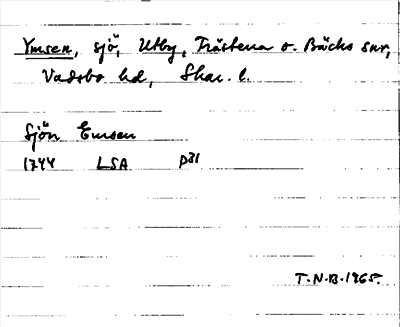 Ymsen, sjö, Utby, Trästena o. Bäcks snr,
Vadsbo hd, Skar. l.
Sjön Emsen
1744 LSA P31
T.N.B. 1965.